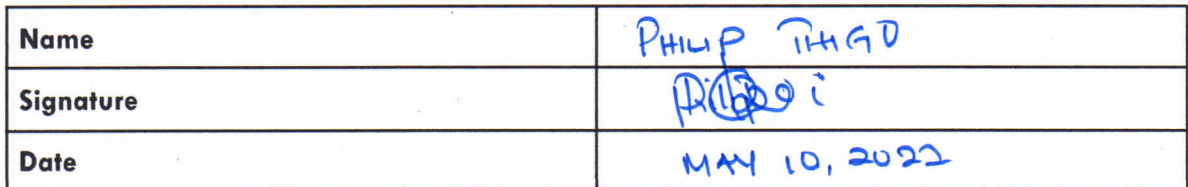 Name PHILIP THIGO
Signature
Date MAY 10, 2022